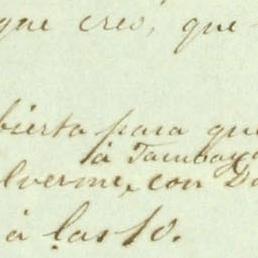 que creo, que
bierta para que
à Tacubaya
lverme, con D
à las 10.